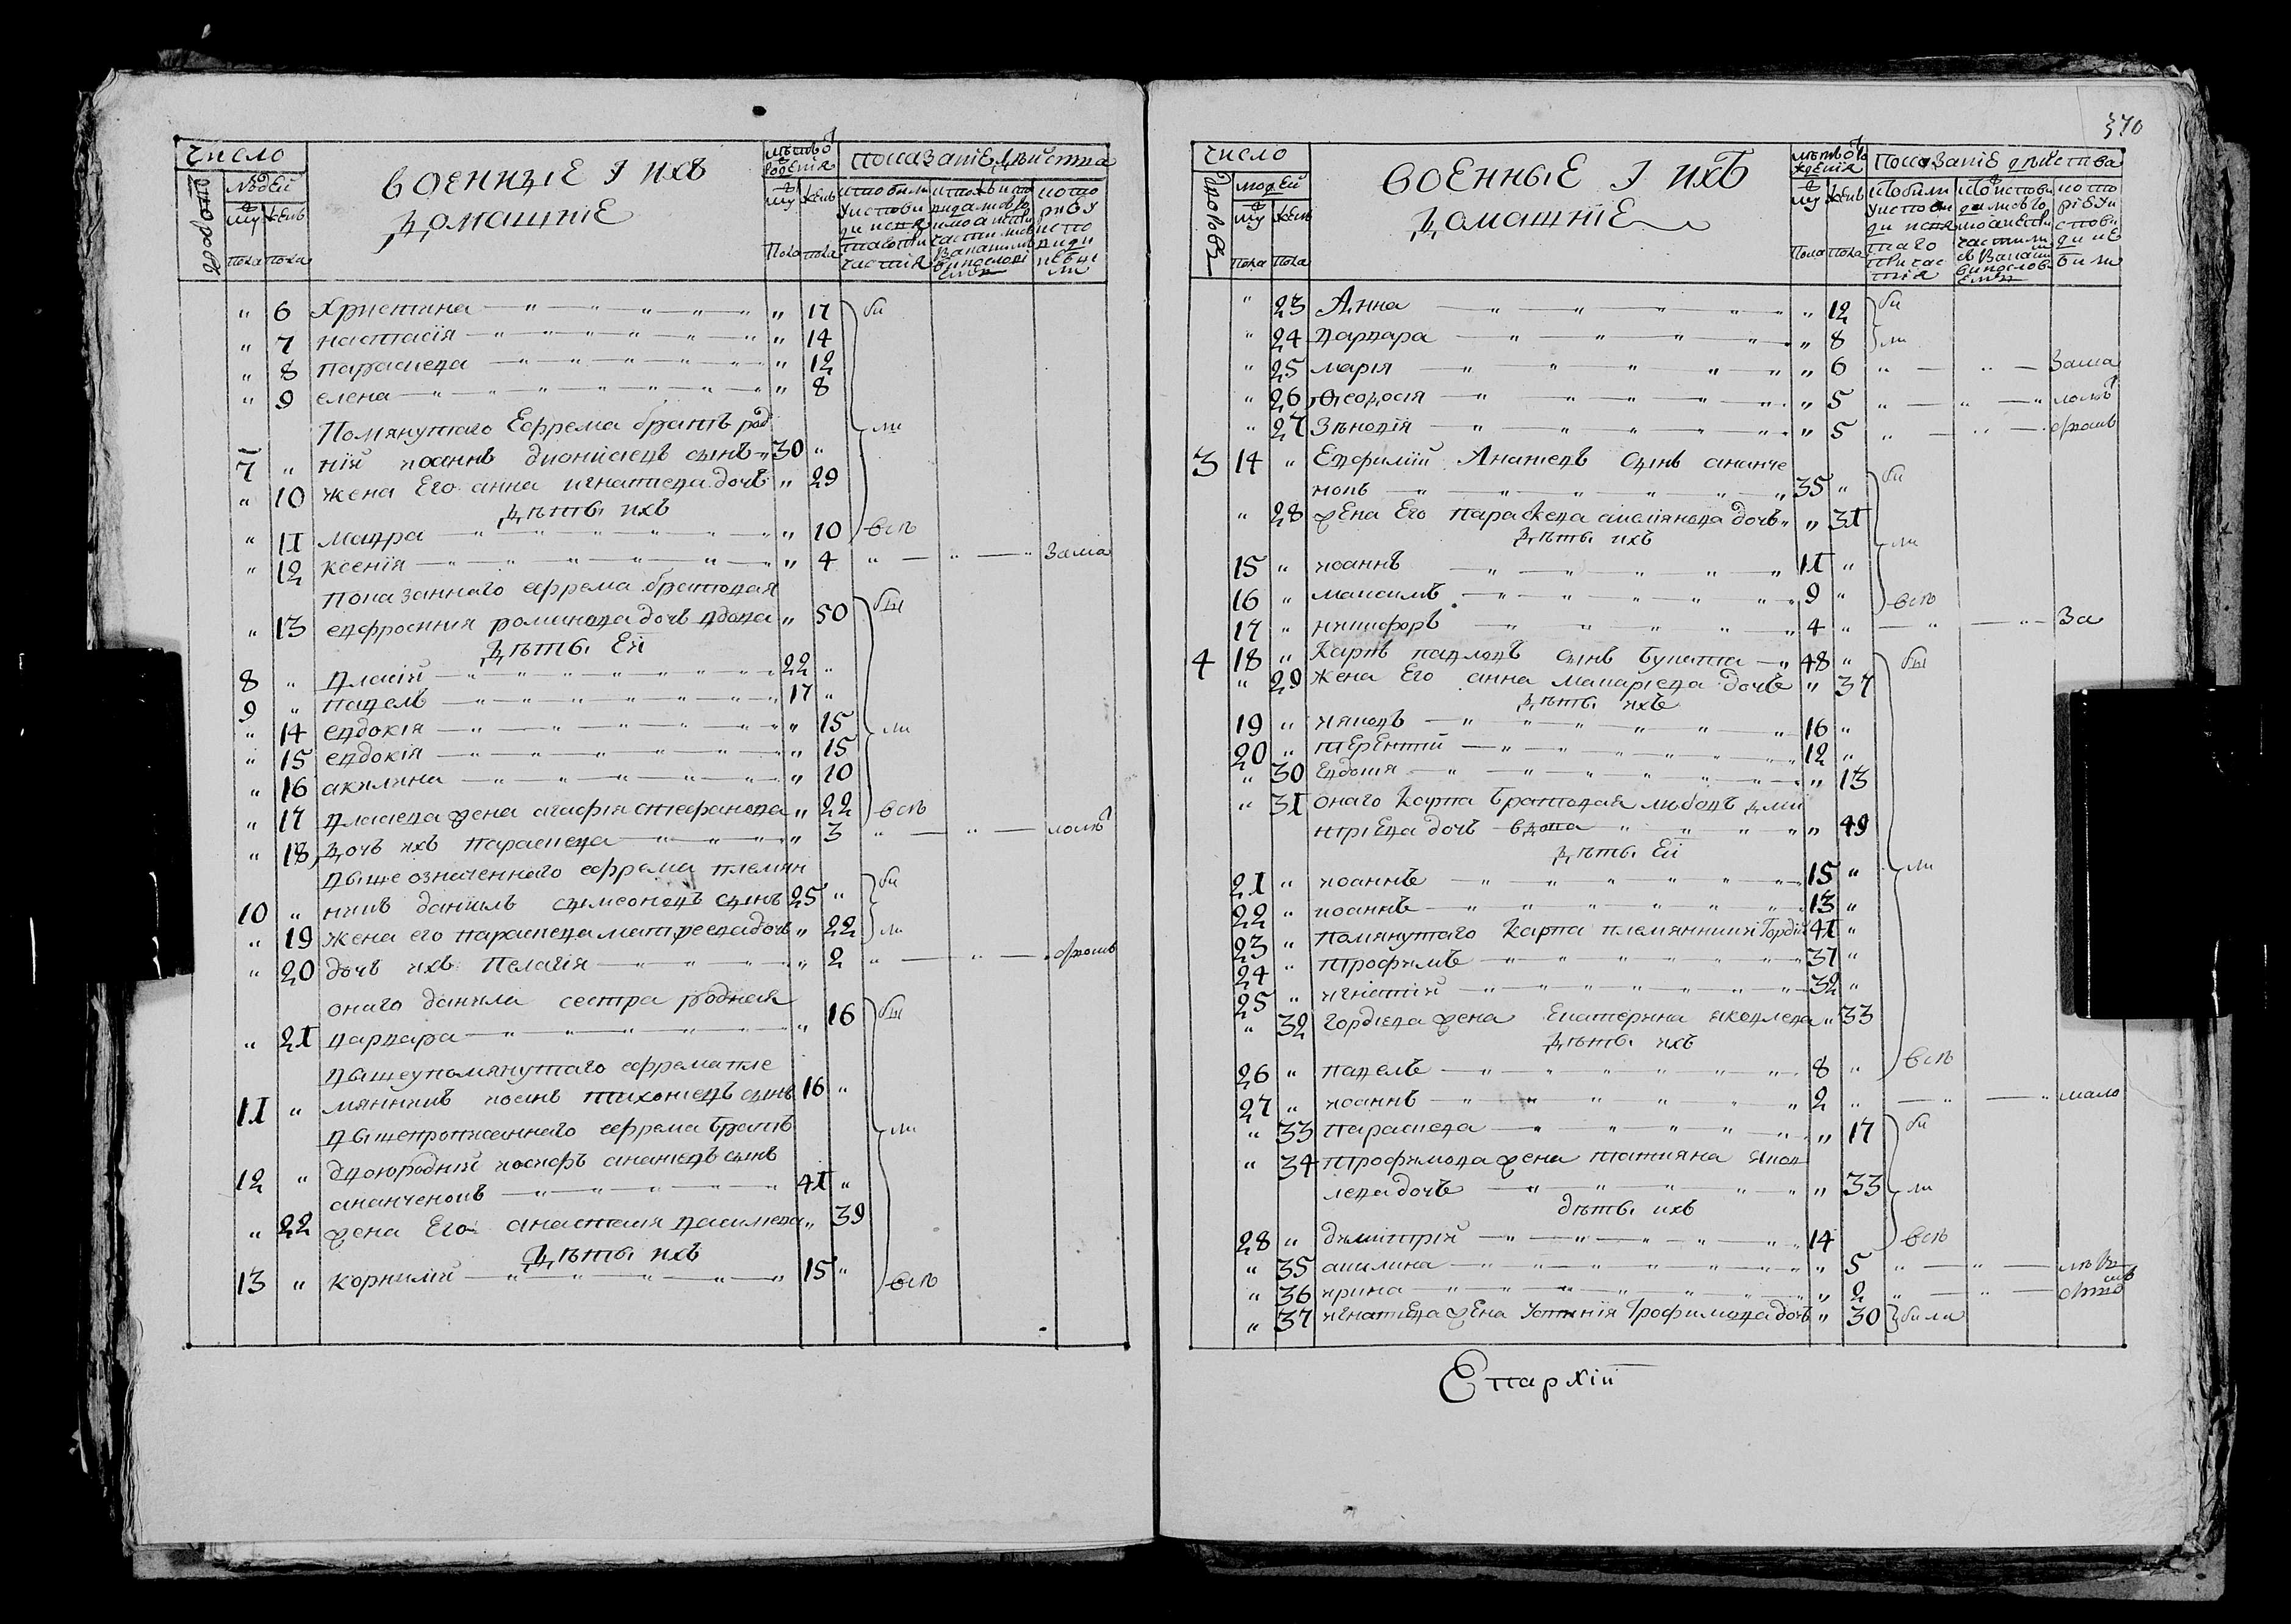 число
военные I ихъ
домашніе
лѣтъ от
рожденія
показаніе дѣйства
дворовъ
людей
му
жен
пола
пола
му
жен
пола
пола
" 6 Христина " 17 бы
" 7 настасія " 14
" 8 параскева " 12
" 9 елена " 8
Помянутаго Ефрема братъ род ли
7 " ній иоаннъ дионисіевъ сынъ 30 "
" 10 жена Его анна игнатиева дочь " 29
Дѣти ихъ
" 11 мавра " 10 всѣ
" 12 ксенія " 4 " " За мa
показаннаго ефрема братовая
" 13 евфросиния романова дочь вдова " 50 бы
Дѣти Ей
8 " власій 22 "
9 " павелъ 17 "
" 14 евдокія " 15 ли
" 15 евдокія " 15
" 16 акилина " 10
" 17 власиева жена агафія стефанова " 22 всѣ
" 18 Дочь ихъ параскева " 3 " " лолѣт
выше означеннаго ефрема племян
10 " никъ даниилъ симеоновъ сынъ 25 " бы
" 19 жена его параскева матфеева дочь " 22 ли
" 20 дочь ихъ Пелагія " 2 " "
онаго данила сестра родная
" 21 варвара " 16 бы
вышеупомянутаго ефрема пле
11 " мянникъ иоанъ тихониевъ сынъ 16 "
вышепрописаннаго ефрема братъ ли
12 " двоюродній иосифъ ананиевъ сынъ
ананченокъ 41 "
" 22 жена Его анастасия васильева " 39
Дѣти ихъ
13 " корнилій 15 " всѣ
370
число
военные I ихъ
домашніе
лѣтъ от
рожденія
показаніе дѣйства
дворовъ
людей
му
жен
пола
пола
му
жен
пола
пола
" 23 Анна " 12 бы
" 24 варвара " 8 ли
" 25 марія " 6 " " За ма
" 26 Ѳеодосія " 5 " " лолѣт
" 27 Зѣновія " 5 " "
3 14 " Евфимій Ананиевъ сынъ ананче
нокъ 35 " бы
" 28 жена Его параскева емелянова дочь " 31
Дѣти ихъ ли
15 " иоаннъ 11 "
16 " максимъ 9 " всѣ
17 " никифоръ 4 " " За
4 18 " Карпъ павловъ сынъ букатка 48 " бы
" 29 жена Его анна макариева дочь " 37
Дѣти ихъ
19 " ияковъ 16 "
20 " терентій 12 "
" 30 Евдокия " 13
" 31 онаго карпа братовая любовъ дми
нтріева дочь вдова " 49
Дѣти Ей
21 " иоаннъ 15 " ли
22 " иоаннъ 13 "
23 " помянутаго карпа племянники Гордій 41 "
24 " трофимъ 37 "
25 " игнатій 32 "
" 32 гордіева жена Екатерина яковлева " 33
Дѣти ихъ
26 " павелъ 8 " всѣ
27 " иоаннъ 2 " " мало
" 33 параскева " 17 бы
" 34 трофимова жена татияна яков
лева дочь " 33 ли
дѣти ихъ
28 " димитрій 14 всѣ
" 35 акилина " 5 " "
" 36 ирина " 2 " "
" 37 игнатиева жена Устинія Трофимова дочь " 30 были
Епархіи